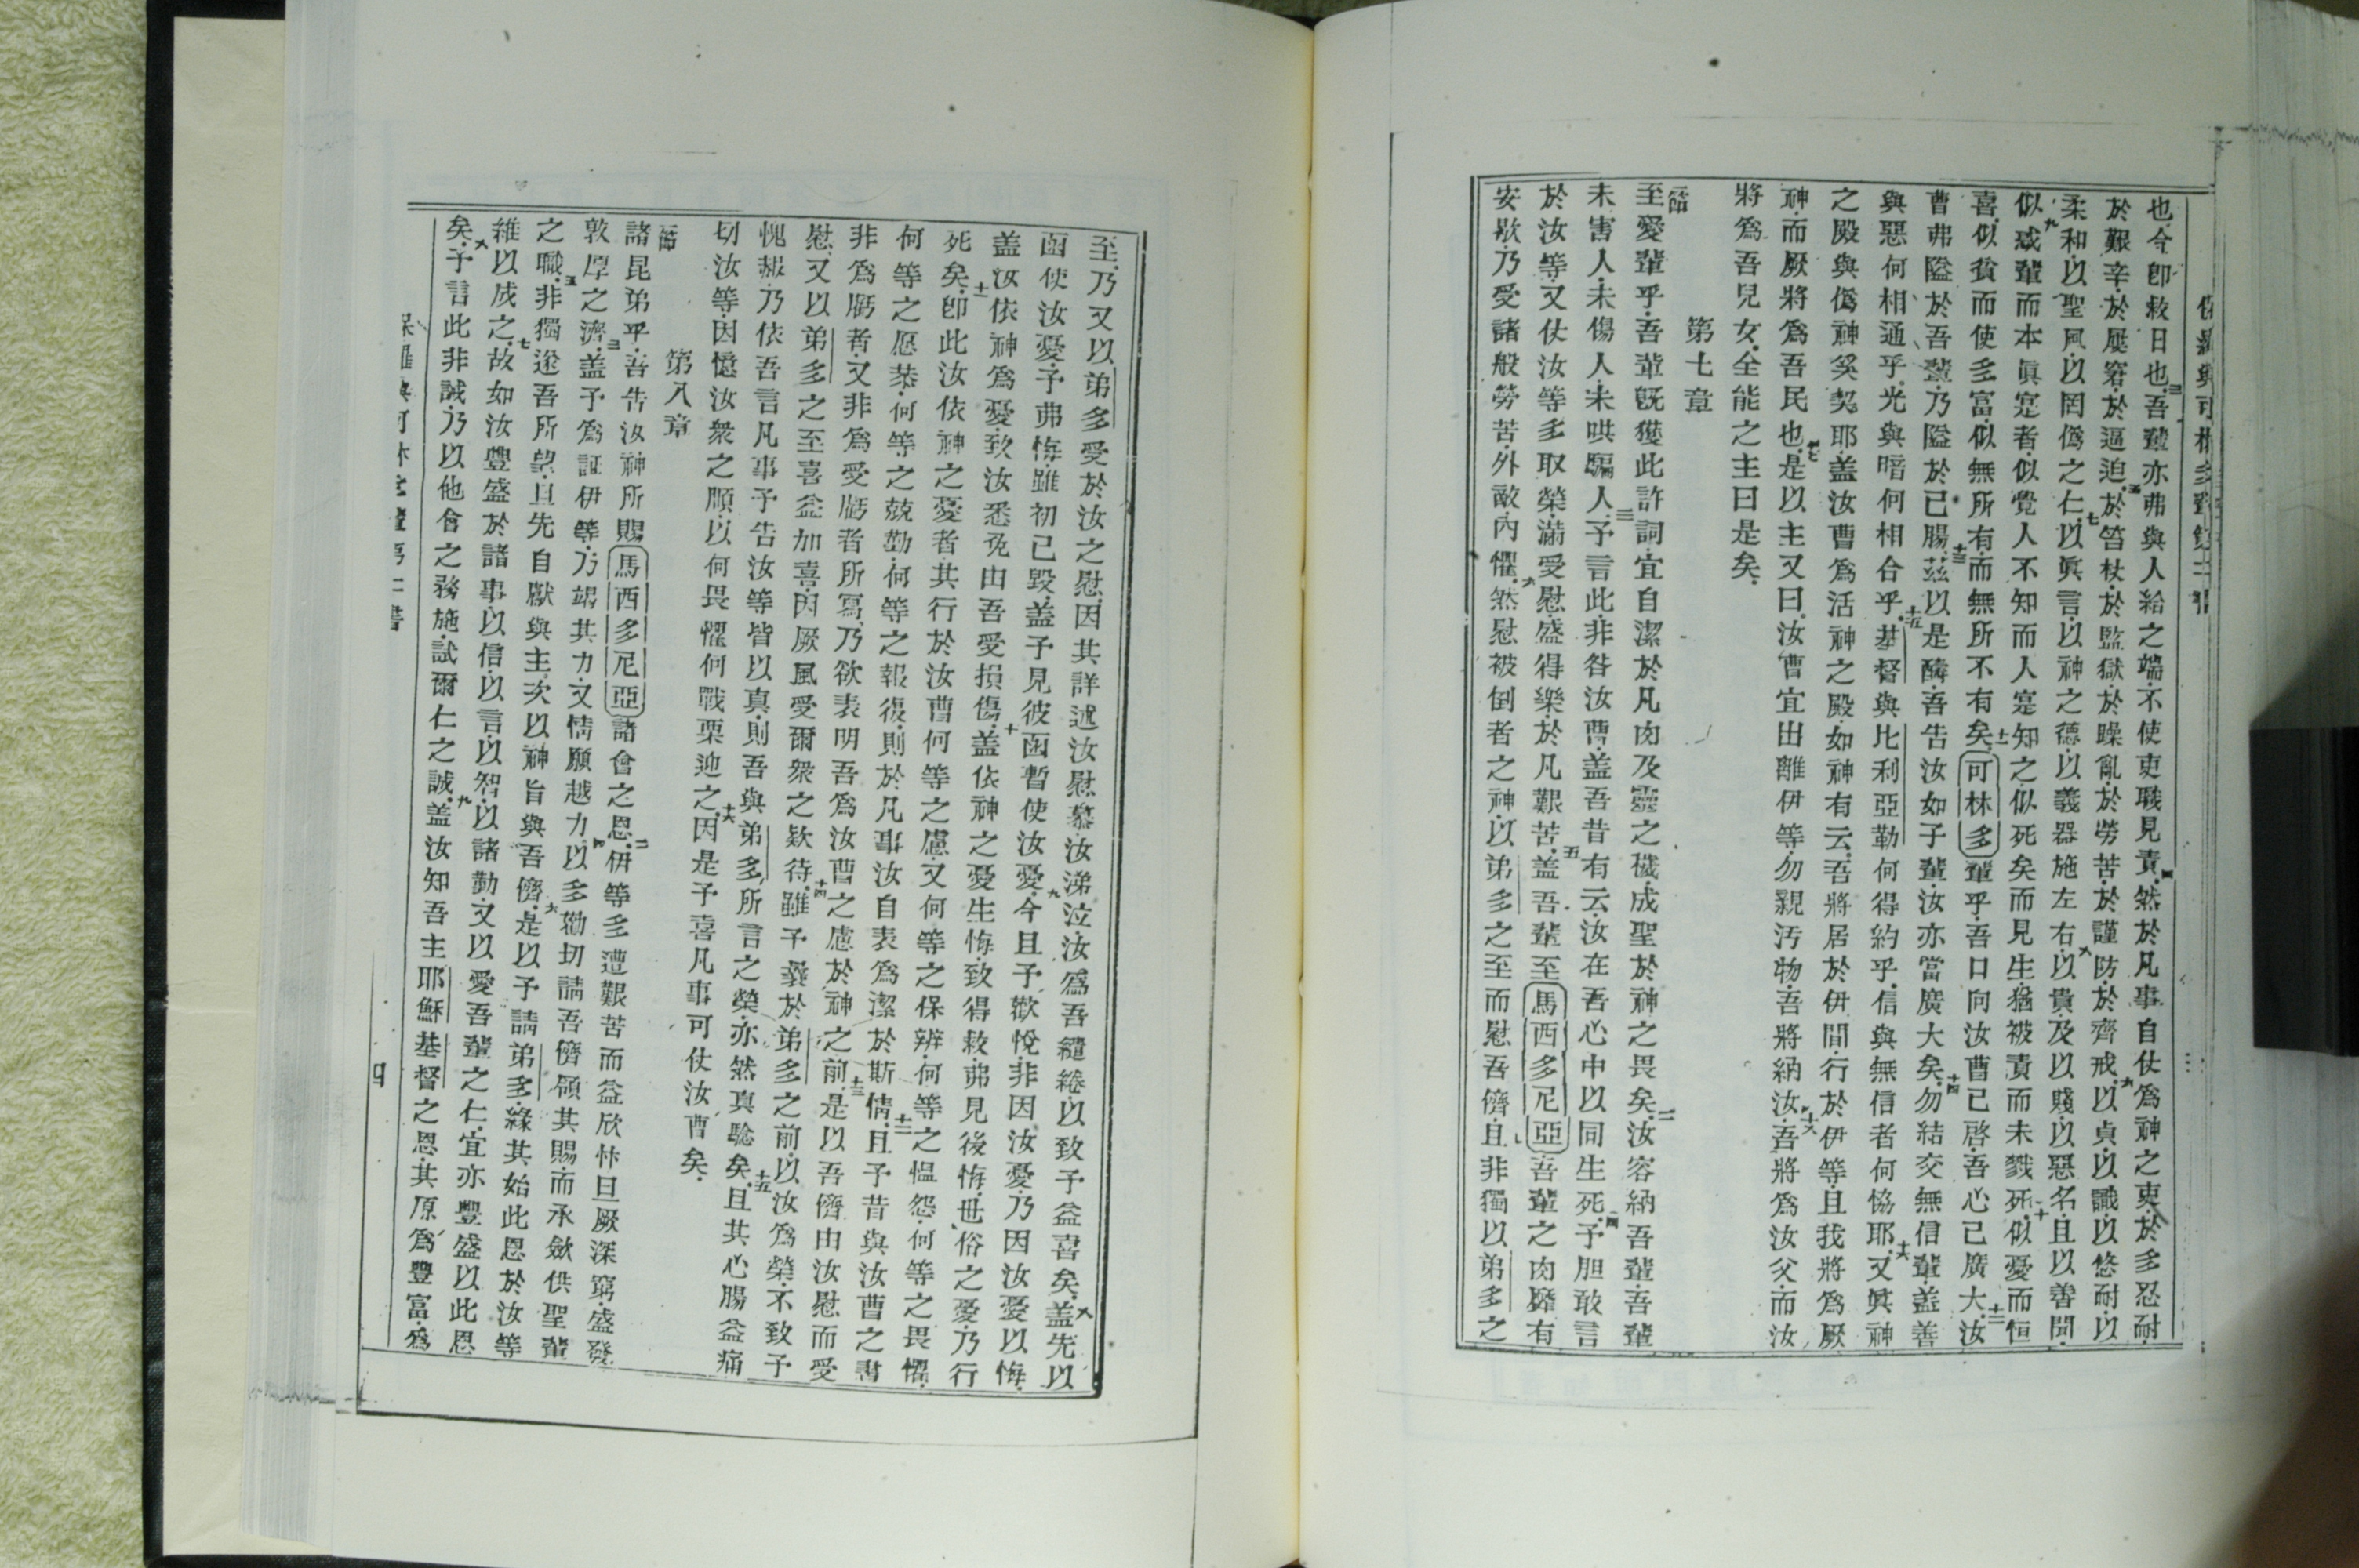 也今卽救日也三吾輩亦弗與人給之端不使吏職見責四然於凡事自仗爲神之吏於多忍耐
於艱辛於屢窘於逼迫五於笞杖於監獄於躁亂於勞苦於謹防於齊戒六以貞以識以悠耐以
柔和以聖風以罔僞之仁七以眞言以神之德以義器施左右八以貴及以賤以惡名且以善聞
似惑輩而本眞寔者九似覺人不知而人寔知之似死矣而見生猶被責而未戮死十似憂而恒
喜似貧而使多富似無所有而無所不有矣十一可林多輩乎吾口向汝曹已啓吾心已廣大十二汝
曹弗隘於吾輩乃隘於已腸十三茲以是酬吾告汝如子輩汝亦當廣大矣十四勿結交無信輩蓋善
與惡何相通乎光與暗何相合乎十五基督與比利亞勒何得約乎信與無信者何恊耶十六又眞神
之殿與僞神奚契耶盖汝曹爲活神之殿如神有云吾將居於伊間行於伊等且我將爲厥
神而厥將爲吾民也十七是以主又曰汝曹宜出離伊等勿親汚物吾將納汝十八吾將爲汝父而汝
將爲吾兒女全能之主曰是矣
第七章
一節至愛輩乎吾輩旣獲此許詞宜自潔於凡肉及靈之穢成聖於神之畏矣二汝容納吾輩吾輩
未害人未傷人未哄騙人三予言此非咎汝曹盖吾昔有云汝在吾心中以同生死四予胆敢言
於汝等又仗汝等多取榮滿受慰盛得樂於凡艱苦五盖吾輩至馬西多尼亞吾輩之肉靡有
安歇乃受諸般勞苦外敵內懼六然慰被倒者之神以弟多之至而慰吾儕七且非獨以弟多之
至乃又以弟多受於汝之慰因其詳述汝慰慕汝涕泣汝爲吾繾綣以致予益喜矣八盖先以
函使汝憂予弗悔雖初已毀盖予見彼函暫使汝憂九今且予歡悅非因汝憂乃因汝憂以悔
盖汝依神爲憂致汝悉免由吾受損傷十盖依神之憂生悔致得救弗見後悔世俗之憂乃行
死矣十一卽此汝依神之憂者其行於汝曹何等之慮又何等之保辨何等之慍怨何等之畏懼
何等之愿恭何等之兢勤何等之報復則於凡事汝自表爲潔於斯情十二且予昔與汝曹之書
非爲勵者又非爲受勵者所寫乃欲表明吾爲汝曹之慮於神之前十三是以吾儕由汝慰而受
慰又以弟多之至喜益加喜因厥風愛爾衆之欵待十四雖予曩於弟多之前以汝爲榮不致予
愧赧乃依吾言凡事予告汝等皆以真則吾與弟多所言之榮亦然真騐矣十五且其心腸益痛
切汝等因憶汝衆之順以何畏懼何戰栗迎之十六因是予喜凡事可仗汝曹矣
第八章
一節諸昆弟乎吾告汝神所賜馬西多尼亞諸會之恩二伊等多遭艱苦而益欣忭且厥深窮盛發
敦厚之濟三盖予爲証伊等乃竭其力又情願越力四以多勸切請吾儕領其賜而承斂供聖輩
之職五非獨逮吾所望且先自獻與主次以神旨與吾儕六是以予請弟多緣其始此恩於汝等
雖以成之七故如汝豐盛於諸事以信以言以智以諸勤又以愛吾輩之仁宜亦豐盛以此恩
矣八予言此非誡乃以他會之務施試爾仁之誠九盖汝知吾主耶穌基督之恩其原爲豐富爲
保羅與可林多輩第二書
四